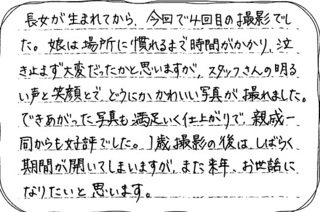 長女が生まれてから、今回で4回目の撮影でし
た。娘は場所に慣れるまで時間がかかり、泣
き止まず大変だったかと思いますが、スタッフさんの明る
い声と笑顔とで、どうにか、かわいい写真が撮れました。
できあがった写真も満足いく仕上がりで、親戚一
同からも好評でした。1歳撮影の後は、しばらく
期間が開いてしまいますが、また来年、お世話に
なりたいと思います。